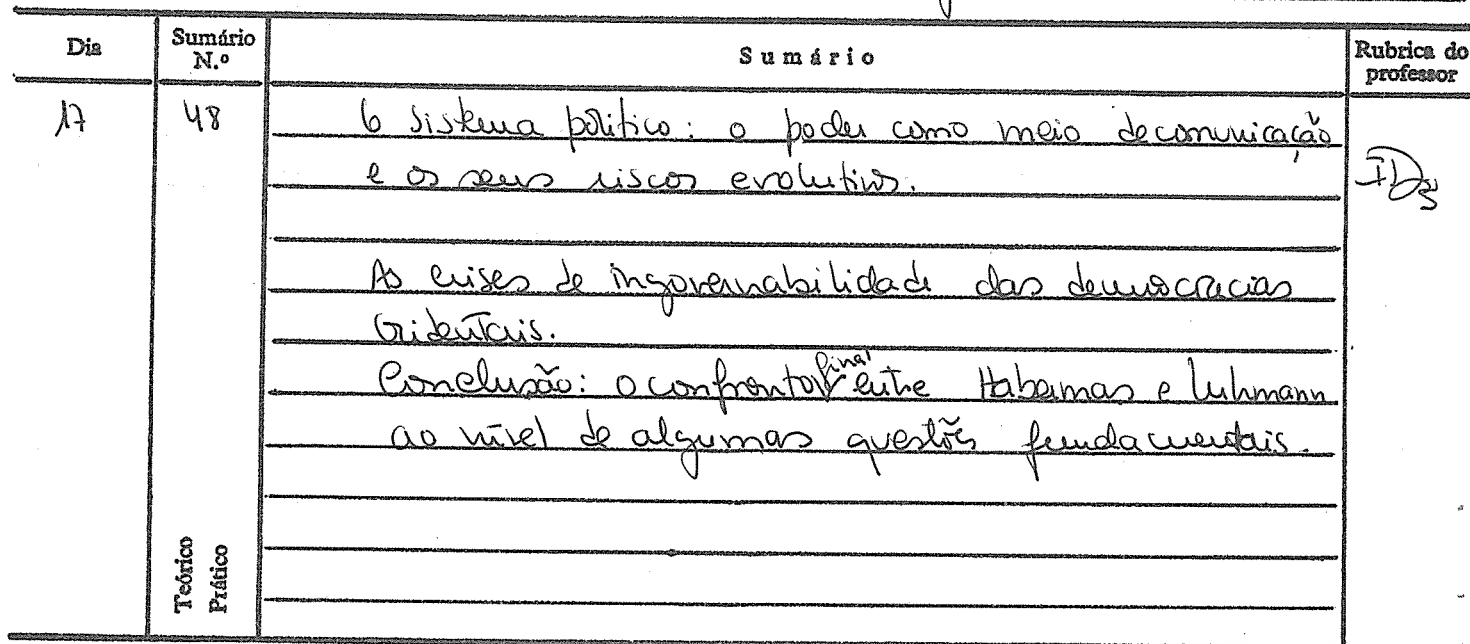 Dia Sumário N.º Sumário Rubrica do professor
17 48 O Sistema político: o poder como meio de comunicação
e os seus riscos evolutivos.
As crises de ingovernabilidade das democracias
Ocidentais.
Conclusão: o confronto final entre Habermas e Luhmann
ao nível de algumas questões fundamentais.
Teórico
Prático